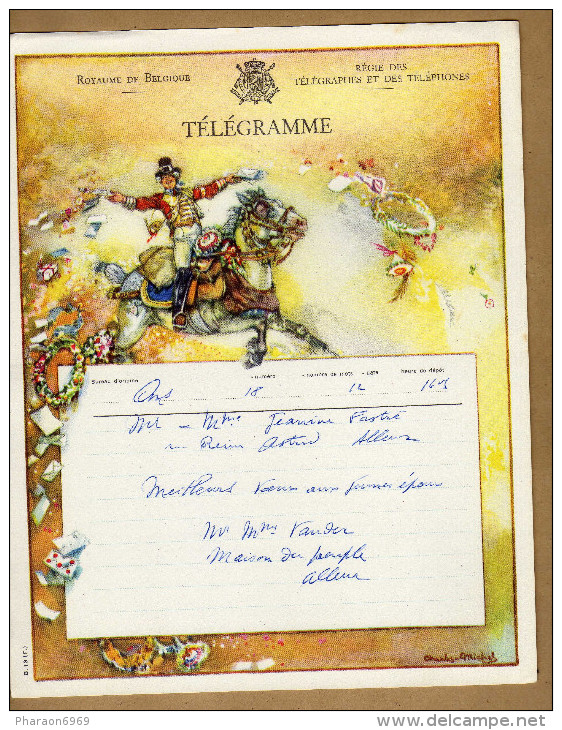 ROYAUME DE BELGIQUE
RÉGIE DES
TÉLÉGRAPHES ET DES TÉLÉPHONES
TÉLÉGRAMME
Bureau d'origine - numéro - nombre de mots - date heure de dépôt
Ans 18 12
Mr - Mme Jeanine Fastré
Reine Astrid Alleur
Meilleurs voeux aux jeunes époux
Mr Mme Vander
Maison du peuple
Alleur
Pharaon6969
www.delcampe.net